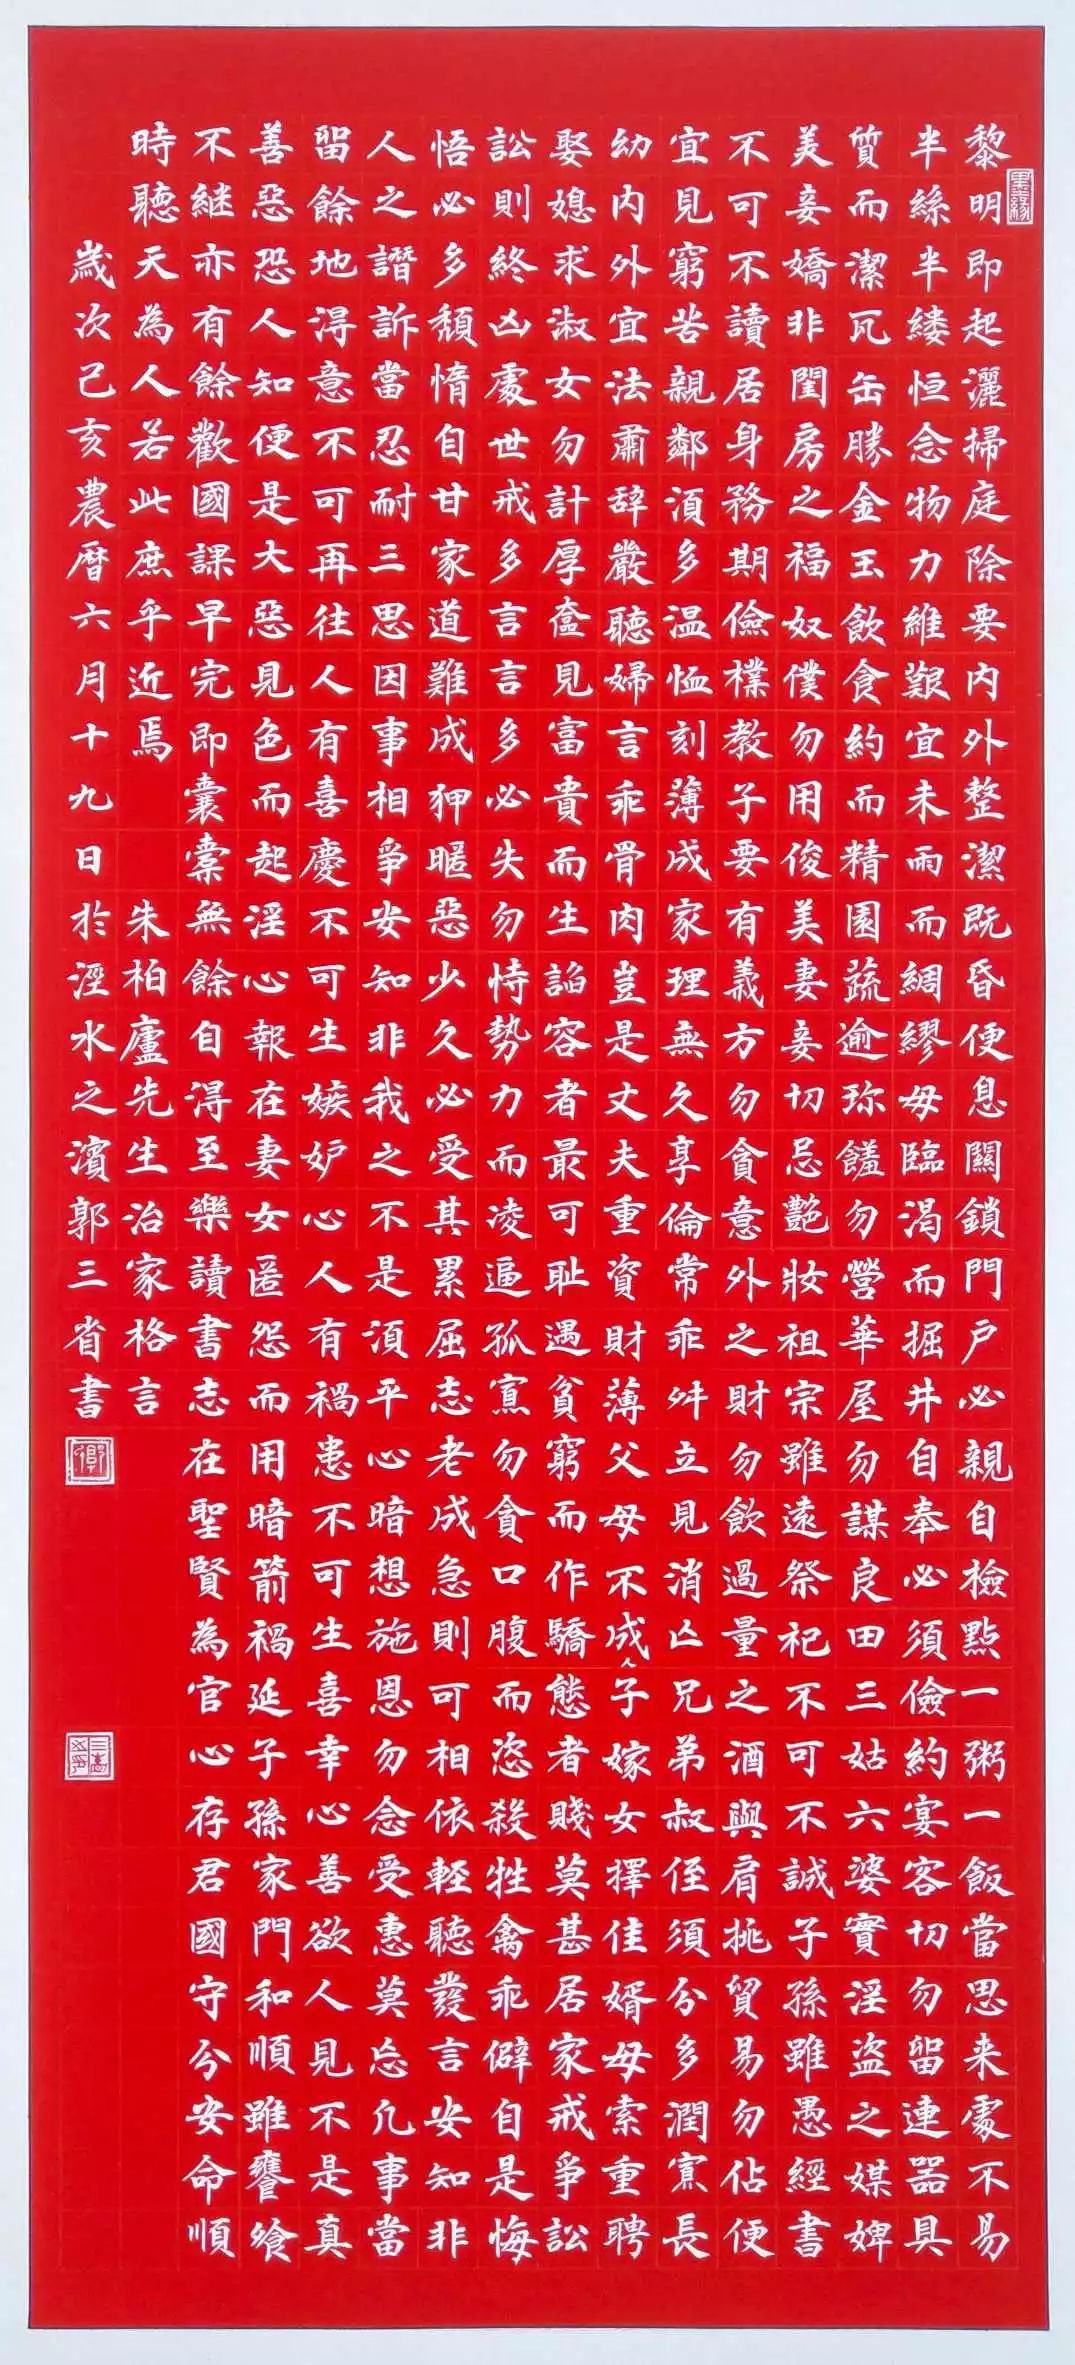 墨緣
黎明即起灑掃庭除要內外整潔既昏便息關鎖門戶必親自檢點一粥一飯當思来處不易
半絲半縷恒念物力維艱宜未雨而綢繆毋臨渴而掘井自奉必須儉約宴客切勿留連器具
質而潔瓦缶勝金玉飲食約而精園蔬逾珎饈勿營華屋勿謀良田三姑六婆實淫盜之媒婢
美妾嬌非閨房之福奴僕勿用俊美妻妾切忌艷妝祖宗雖遠祭祀不可不誠子孫雖愚經書
不可不讀居身務期儉樸教子要有義方勿貪意外之財勿飲過量之酒與肩挑貿易勿佔便
宜見窮苦親鄰須多温恤刻薄成家理無久享倫常乖舛立見消亡兄弟叔侄須分多潤寡長
幼內外宜法肅辞嚴聽婦言乖骨肉豈是丈夫重資財薄父母不成人子嫁女擇佳婿毋索重聘
娶媳求淑女勿計厚奩見富貴而生諂容者最可耻遇貧窮而作驕態者賤莫甚居家戒爭訟
訟則終凶處世戒多言言多必失勿恃勢力而凌逼孤寡勿貪口腹而恣殺牲禽乖僻自是悔
悟必多頹惰自甘家道難成狎暱惡少久必受其累屈志老成急則可相依輕聽發言安知非
人之譖訴當忍耐三思因事相爭安知非我之不是須平心暗想施恩勿念受惠莫忘凡事當
留餘地得意不可再往人有喜慶不可生嫉妒心人有禍患不可生喜幸心善欲人見不是真
善惡恐人知便是大惡見色而起淫心報在妻女匿怨而用暗箭禍延子孫家門和順雖饔飧
不継亦有餘歡國課早完即囊橐無餘自得至樂讀書志在聖賢為官心存君國守分安命順
時聽天為人若此庶乎近焉 朱柏廬先生治家格言
歲次己亥農曆六月十九日於涇水之濱郭三省書